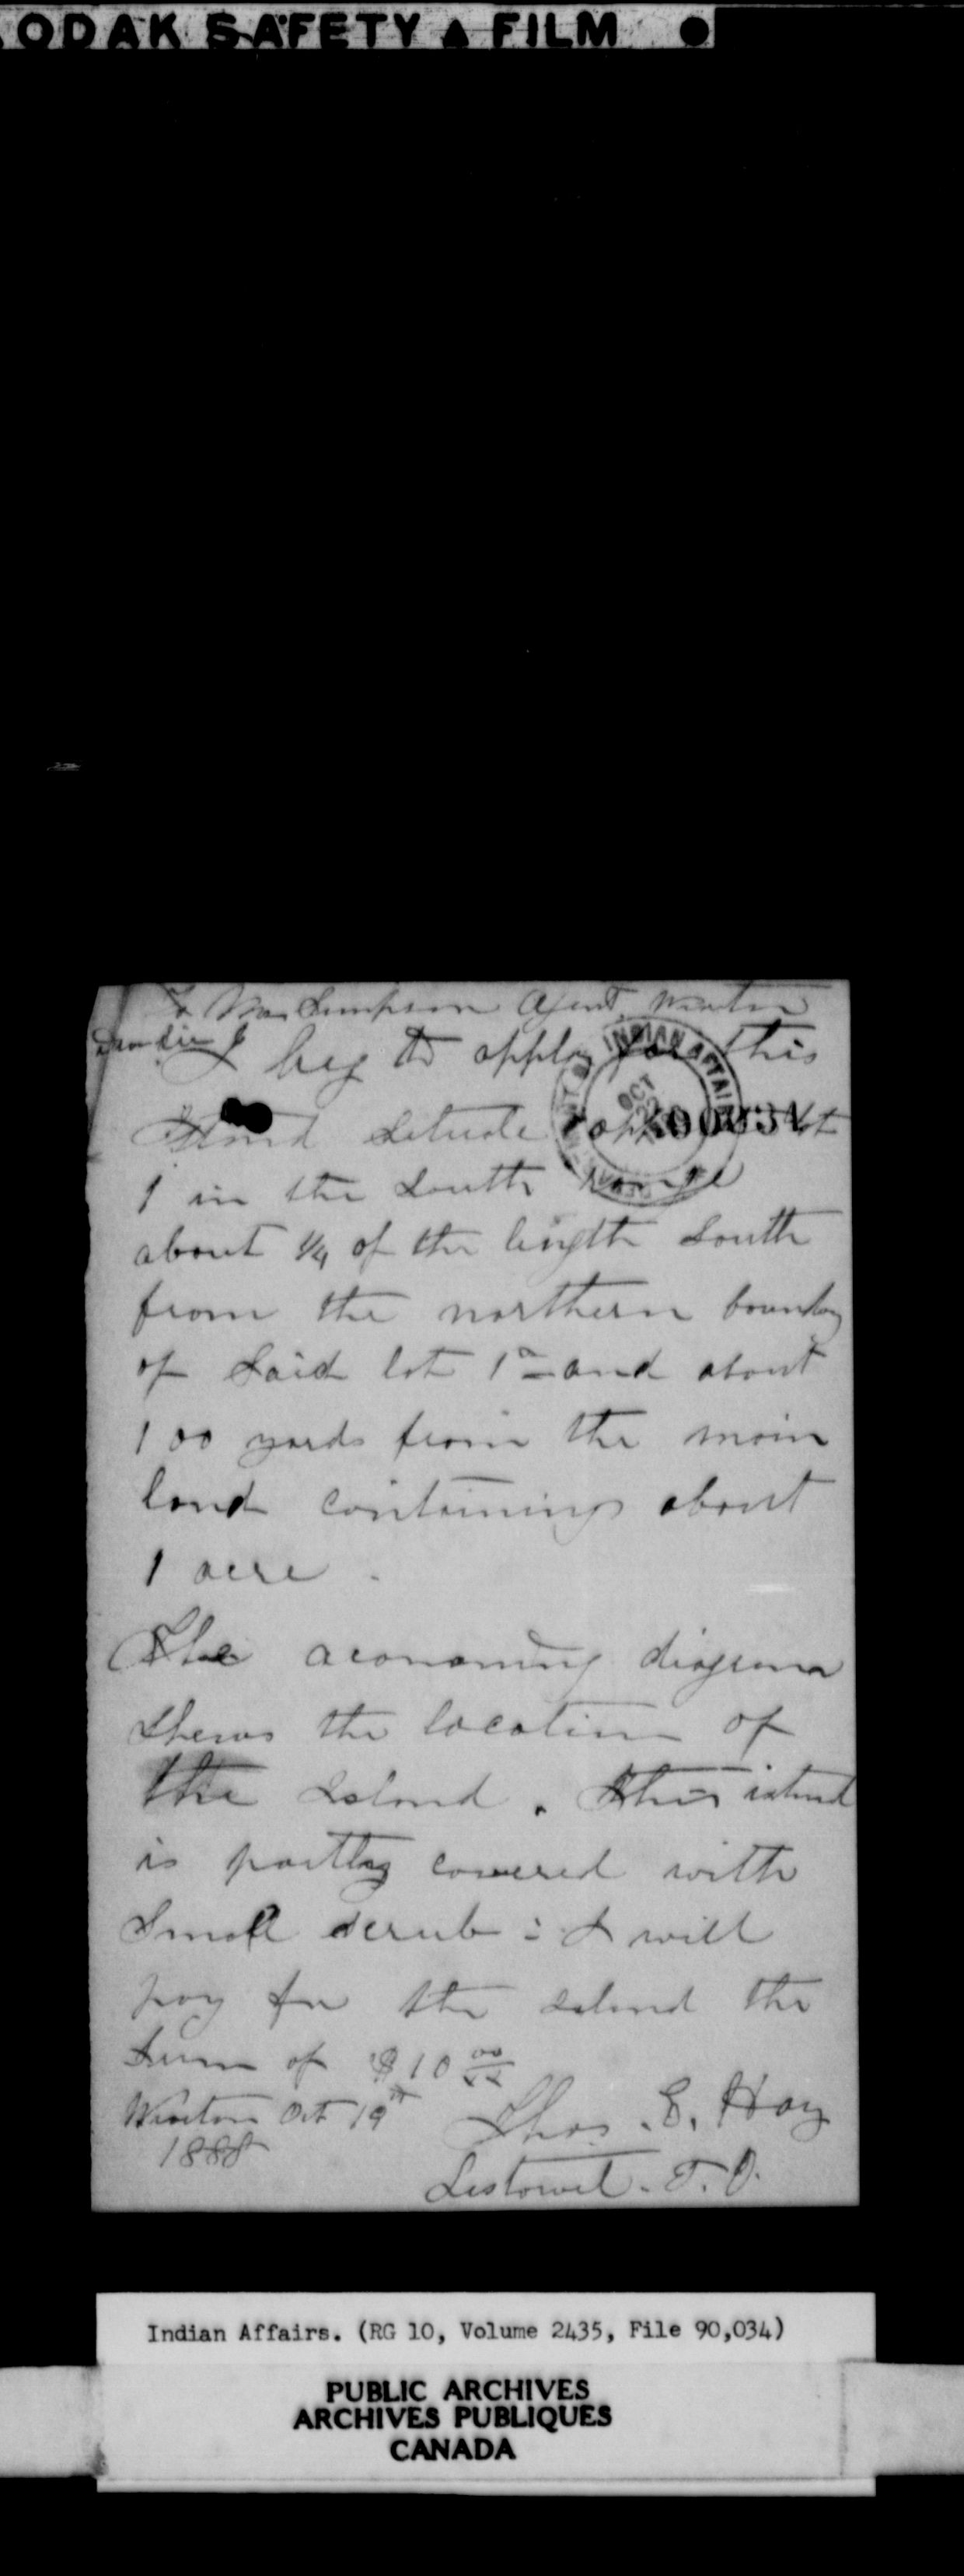 ODAK SAFETY ▲ FILM ●
To Wm Simpson Agent Wiarton
Dear Sir I beg to apply for this
Island situate opp Lot
INDIAN AFFAIRS
OCT 22
90034
1 in the South Range
about 1/4 of the length South
from the northern boundary
of Said lot 1 and about
100 yards from the main
land containing about
1 acre.
The acconoming diagram
Shews the location of
the Island. This island
is partly covered with
Small scrub: I will
pay for the island the
Sum of $10 00/xx
Wiarton Oct 19th
1888
Thos. E. Hay
Listowel. P.O.
Indian Affairs. (RG 10, Volume 2435, File 90,034)
PUBLIC ARCHIVES
ARCHIVES PUBLIQUES
CANADA